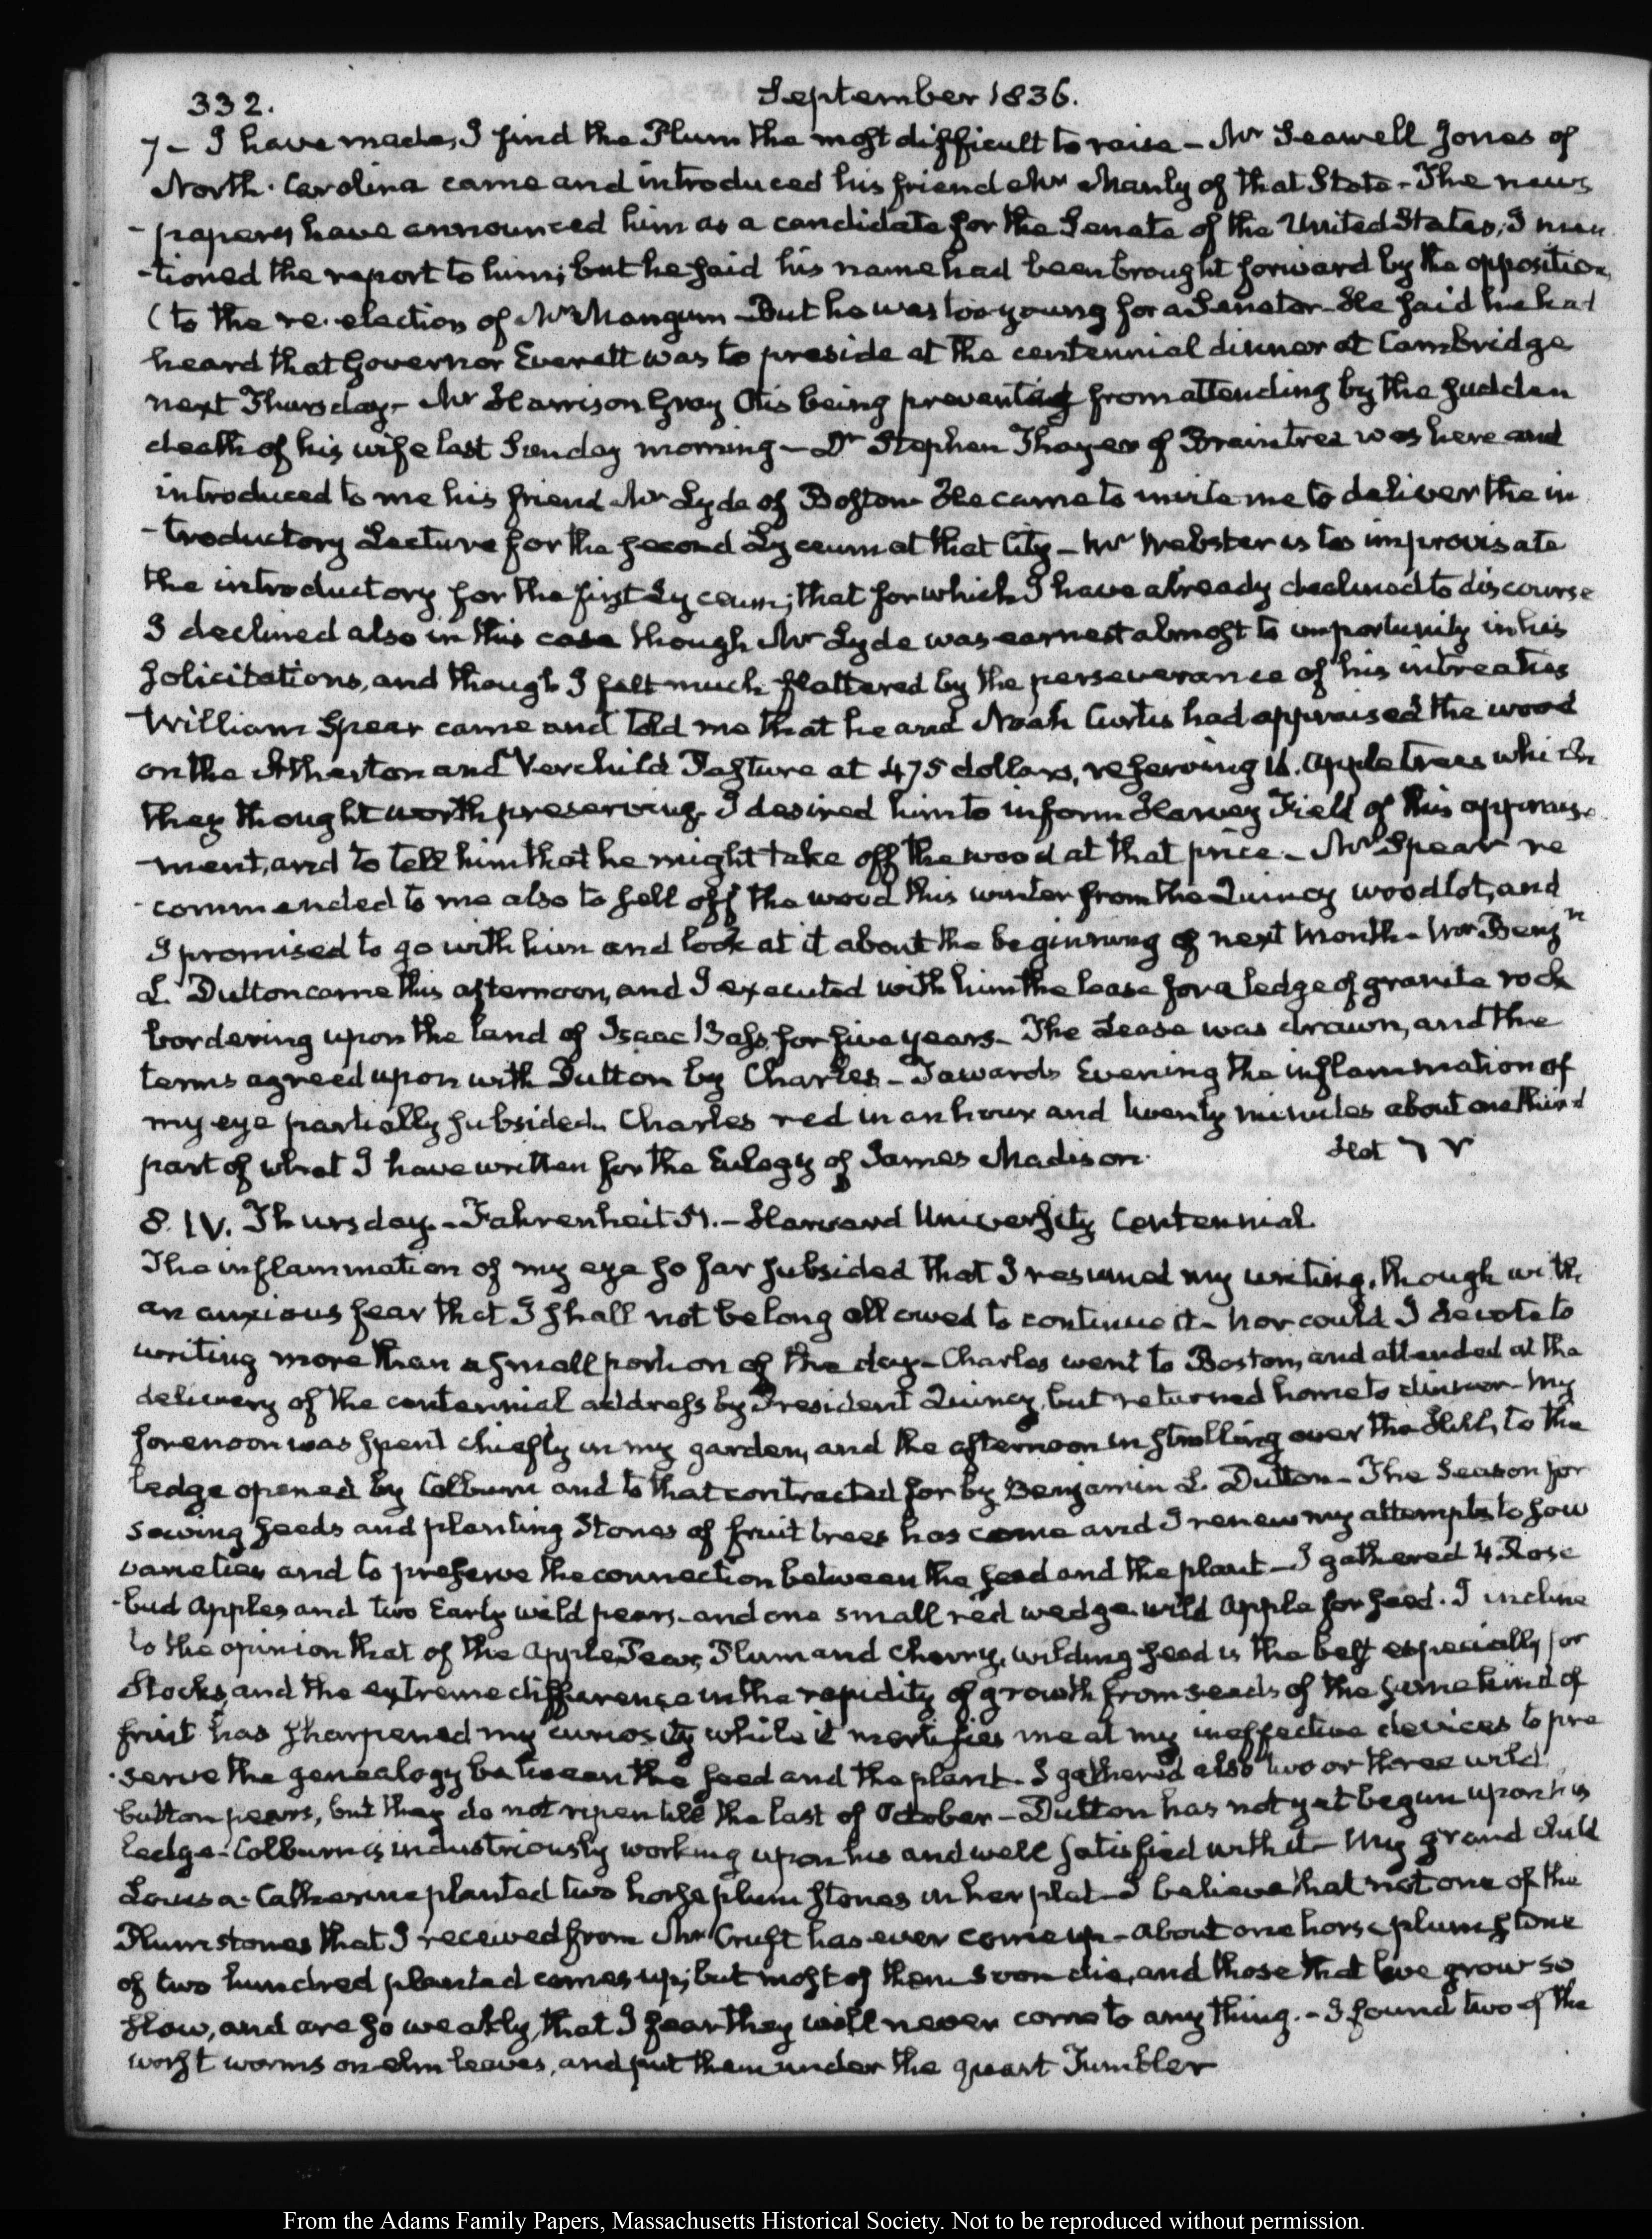 332.
September 1836.
7 – I have made, I find the Plum the most difficult to raise – Mr Seawell Jones of
North-Carolina came and introduced his friend Mr Manly of that State – The news
-papers have announced him as a candidate for the Senate of the United States; I men
-tioned the report to him; but he said his name had been brought forward by the opposition
(to the re-election of Mr Mangum – But he was too young for a Senator – He said he had
heard that Governor Everett was to preside at the centennial dinner at Cambridge
next Thursday – Mr Harrison Gray Otis being prevented from attending by the sudden
death of his wife last Sunday morning – Dr Stephen Thayer of Braintree was here and
introduced to me his friend Mr Lyde of Boston He came to invite me to deliver the in
-troductory Lecture for the second Lyceum at that City – Mr Webster is to improvisate
the introductory for the first Lyceum; that for which I have already declined to discourse
I declined also in this case though Mr Lyde was earnest almost to importunity in his
solicitations, and though I felt much flattered by the perseverance of his intreaties
William Spear came and told me that he and Noah Curtis had appraised the wood
on the Atherton and Verchild Pasture at 475 dollars, reserving 16. apple trees which
they thought worth preserving. I desired him to inform Harvey Field of this appraise
-ment, and to tell him that he might take off the wood at that price – Mr Spear re
-commended to me also to sell off the wood this winter from the Quincy wood lot, and
I promised to go with him and look at it about the beginning of next Month – Mr Benjn
L. Dutton came this afternoon, and I executed with him the lease for a ledge of granite rock
bordering upon the land of Isaac Bass, for five years – The Lease was drawn, and the
terms agreed upon with Dutton by Charles – Towards Evening the inflammation of
my eye partially subsided. Charles red in an hour and twenty minutes about one third
part of what I have written for the Eulogy of James Madison.
8. IV. Thursday – Fahrenheit 51. – Harvard University Centennial.
The inflammation of my eye so far subsided that I resumed my writing, though with
an anxious fear that I shall not be long allowed to continue it – nor could I devote to
writing more than a small portion of the day – Charles went to Boston, and attended at the
delivery of the centennial address by President Quincy, but returned home to dinner – My
forenoon was spent chiefly in my garden, and the afternoon in strolling over the Hill, to the
ledge opened by Colburn and to that contracted for by Benjamin L. Dutton – The Season for
sowing seeds and planting Stones of fruit trees has come and I renew my attempts to sow
varieties and to preserve the connection between the seed and the plant – I gathered 4 Rose
-bud Apples and two Early wild pears – and one small red wedge wild Apple for seed. I incline
to the opinion that of the Apple, Pear, Plum and Cherry, wilding seed is the best especially for
Stocks, and the extreme difference in the rapidity of growth from seeds of the same kind of
fruit has sharpened my curiosity while it mortifies me at my ineffective devices to pre
-serve the genealogy between the seed and the plant – I gathered also two or three wild
button pears, but they do not ripen till the last of October – Dutton has not yet begun upon his
ledge – Colburn is industriously working upon his and well satisfied with it – My grand child
Louisa-Catherine planted two horse plum stones in her plat – I believe that not one of the
Plum stones that I received from Mr Cruft has ever come up – about one horse plum stone
of two hundred planted comes up; but most of them soon die, and those that live grow so
slow, and are so weakly, that I fear they will never come to any thing. – I found two of the
worst worms on elm leaves, and put them under the quart Tumbler
From the Adams Family Papers, Massachusetts Historical Society. Not to be reproduced without permission.